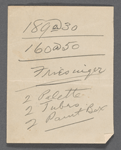 189@30
160@50
Friesinger
2 Palette
2 Tubes
2 Paint Box